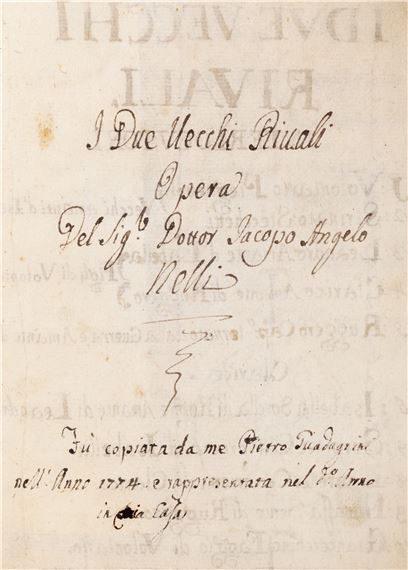 I Due Vecchi Rivali
Opera
Del Sig.r Dottor Jacopo Angelo
Nelli
Fù copiata da me Pietro
nell'Anno 1774 e rappresentata nel d.o Anno
in Casa